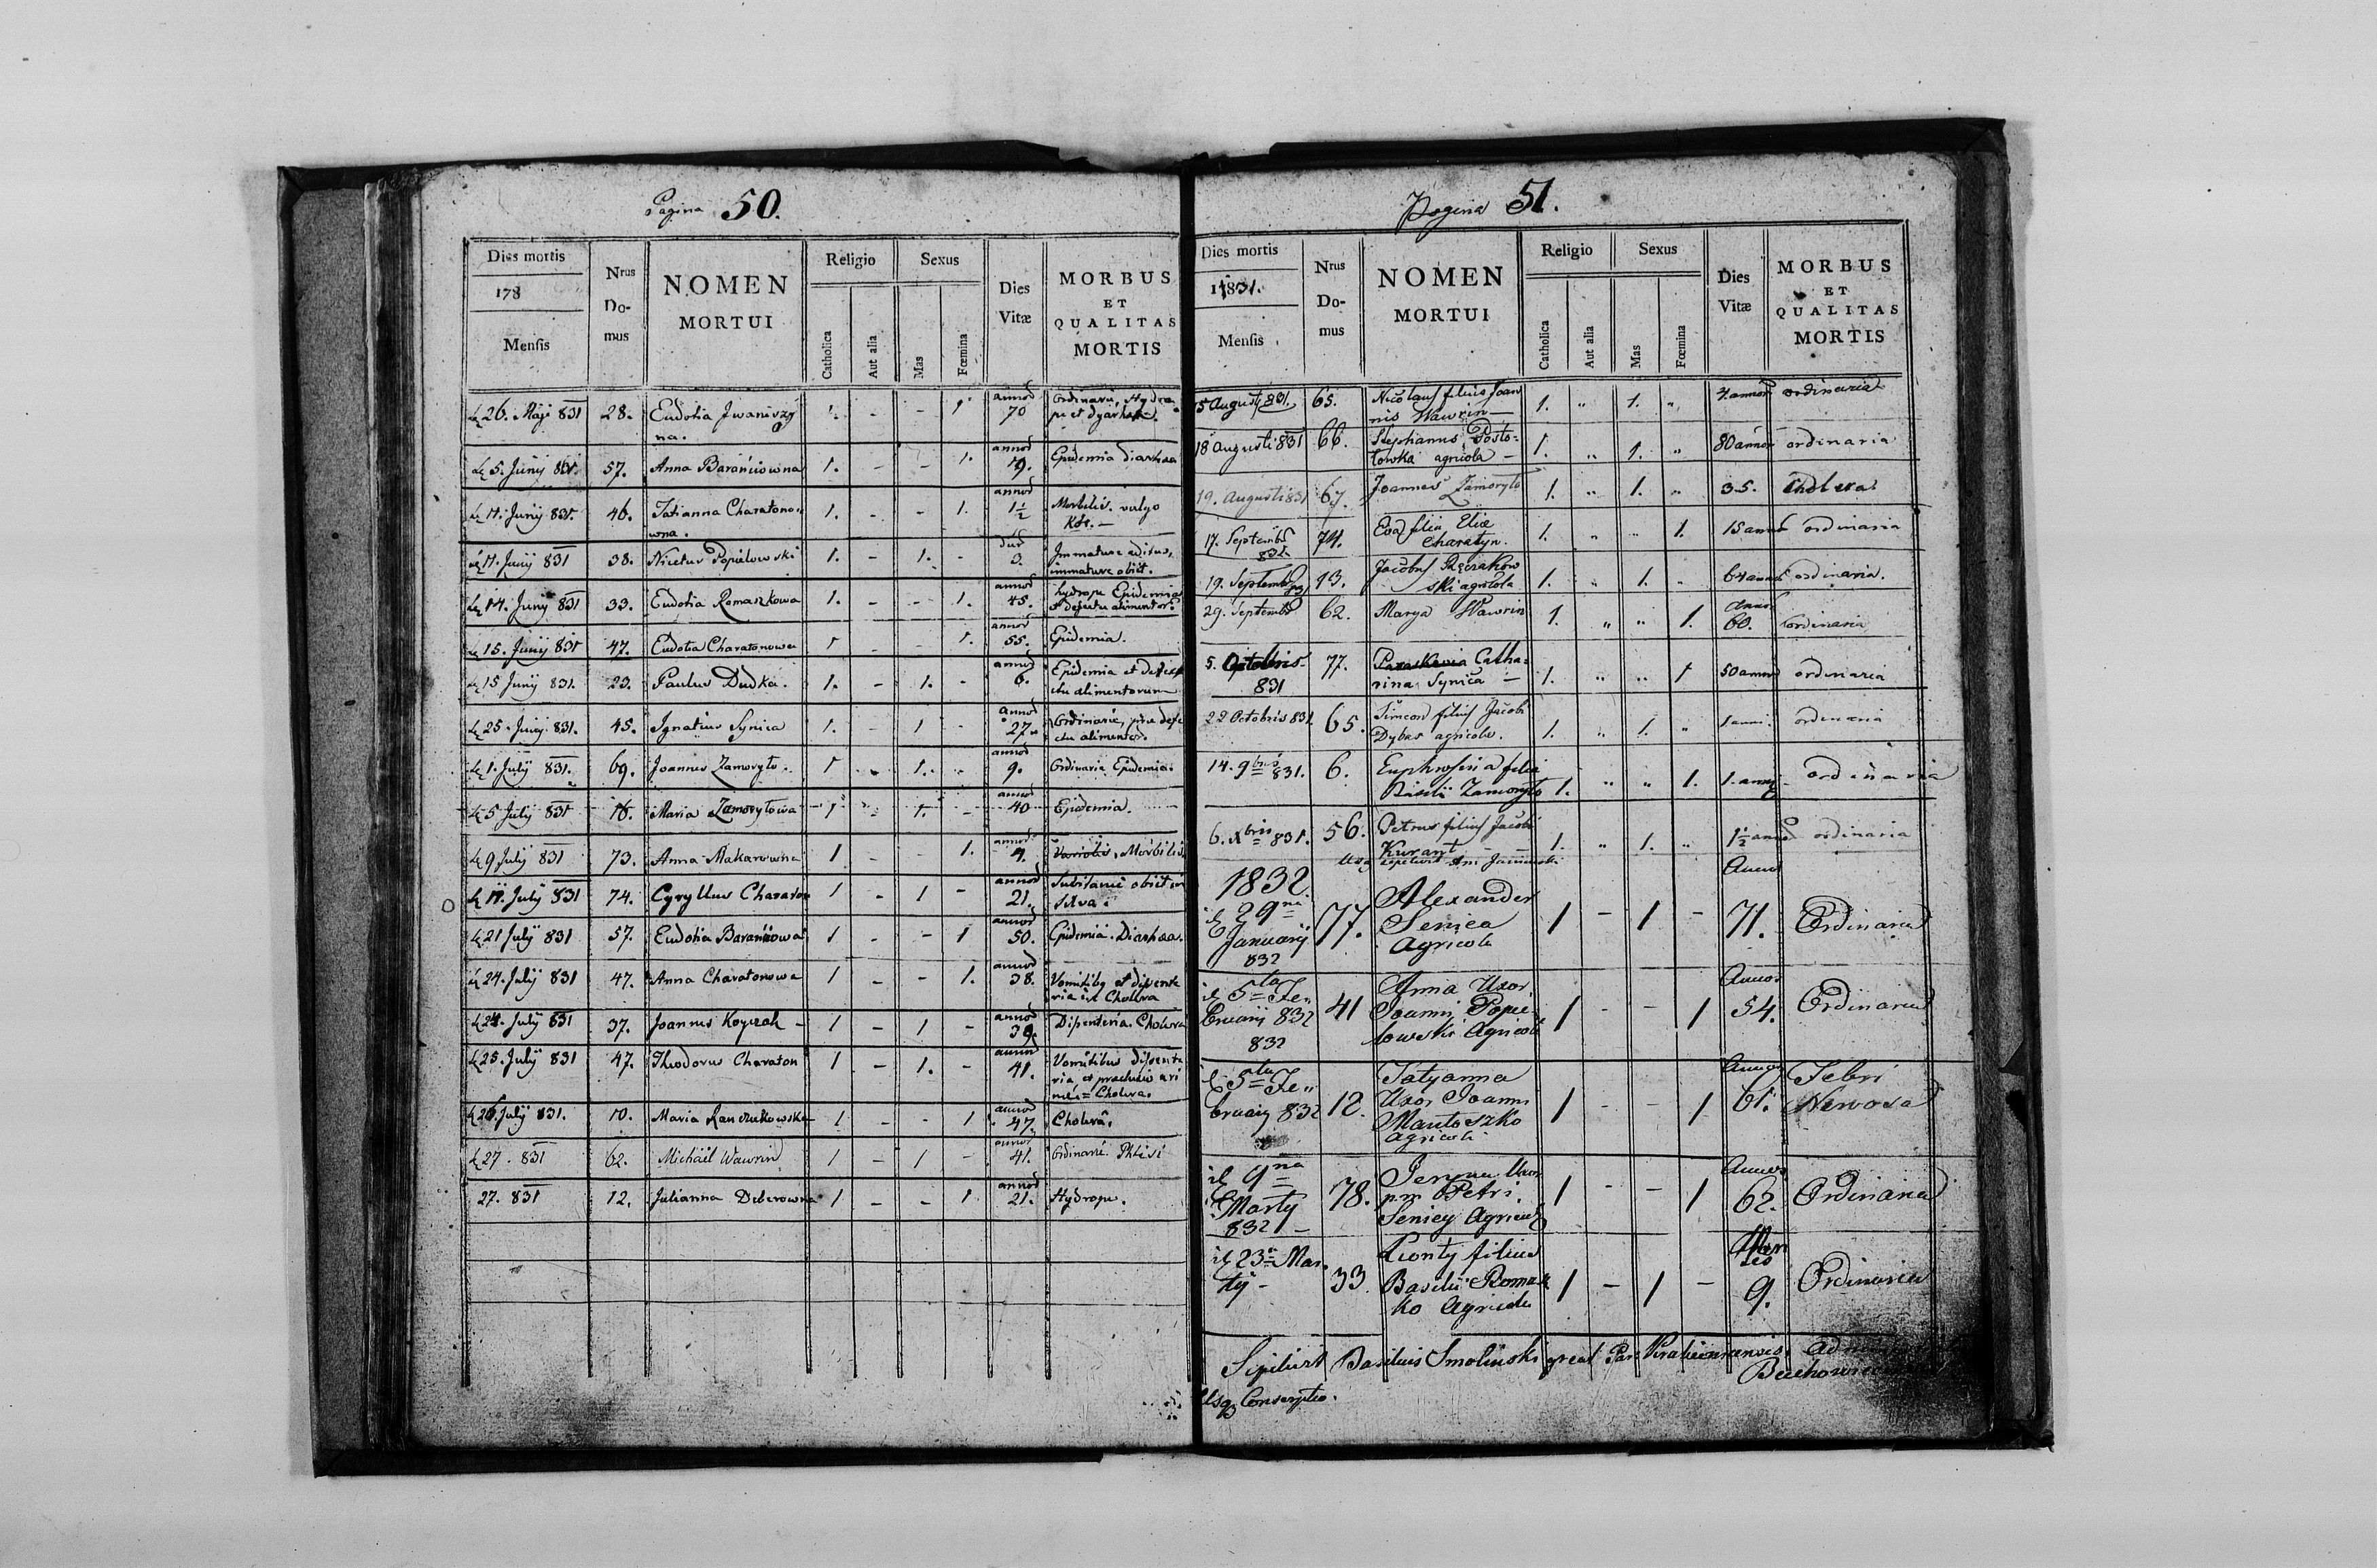 Pagina 50.
Dies mortis
178
Mensis
Nrus Do- mus
NOMEN MORTUI
Religio
Catholica
Aut alia
Sexus
Mas
Fœmina
Dies Vitæ
MORBUS ET QUALITAS MORTIS
26. Maji 831 28. Eudotia Iwaniszy 1. - - 1. annor 70 Ordinaria, Hydro
na. pe et dyarhea.
5. Junij 831. 57. Anna Barańiowna 1. - - 1. annor 19. Epidemia diarhaa
11. Junij 831. 46. Tatianna Charatono 1. - - 1. annor 1½ Morbilis. vulgo
wna. Kór. —
11. Junij 831 38. Nicetus Popielowski 1. - 1. - 3. Immature aditus,
immature obiit.
14. Juny 831 33. Eudotia Romaszkowa 1. - - 1. annor 45. hydrope Epidemia
et defectu alimentor.
15. Junij 831 47. Eudotia Charatonowa 1 - - 1. annor 55. Epidemia.
15 Junij 831. 23. Paulus Dudka. 1. - 1. - annor 6. Epidemia et defe
ctu alimentorum
25. Junij 831. 45. Ignatius Synica 1. - 1 - annor 27 Ordinarie, prae defe
ctu alimentor.
1. July 831. 69. Joannes Zamoryto. 1 - 1. - annor 9. Ordinaria Epidemia.
5 July 831 16. Maria Zamorytowa 1 - 1. - annor 40 Epidemia.
9 July 831 73. Anna Makarowna 1 - - 1. annor 4. Variolis, Morbilis
11. July 831 74. Cyryllus Charaton 1 - 1 - annor 21. Subitanie obiit in
Silva.
21 July 831 57. Eudotia Barańiowa 1 - - 1 annor 50. Epidemia. Diarhaa.
24. July 831 47. Anna Charatonowa 1 - - 1. annor 38. Vomitibg et disente
ria est Cholera
24. July 831 37. Joannes Koyczak - 1 - 1 - annor 39. Disenteria. Cholera
25. July 831 47. Theodorus Charaton 1 - 1. - annor 41. Vomitibus disente
ria et
Cholera.
26. July 831. 10. Maria Ranczukowska 1 - - 1 annor 47. Cholera.
27. 831 62. Michäil Wawrin 1 - 1 - annor 41. Ordinarie Phtisi
27. 831 12. Julianna Deberowna 1 - - 1 annor 21. Hydrope.
Pagina 51.
Dies mortis
1831.
Mensis
Nrus Do- mus
NOMEN MORTUI
Religio
Catholica
Aut alia
Sexus
Mas
Fœmina
Dies Vitæ
MORBUS ET QUALITAS MORTIS
5 Augusti 831. 65. Nicolaus filius Joan 1. „ 1. „ 4. annor ordinaria
nis Wawrin —
18 Augusti 831 66. Stephanus Posto= 1. „ 1. „ 80 annor ordinaria
lowka agricola —
19. Augusti 831 67. Joannes Zamoryto 1. „ 1. „ 35. Cholera
17. Septembr 831. 74. Eva filia Eliæ 1. „ „ 1. 15 annor ordinaria
Charatyn.
19. Septembr 831 13. Jacobus 1. „ 1. „ 64 annor ordinaria.
ski agricola
29. Septembr 62. Marya Wawrin 1. „ „ 1. annor 60. ordinaria
5. Octobris 831 77. Paraskevia Catha= 1. „ „ 1 50 annor ordinaria
rina Synica —
22 Octobris 831. 65. Simeon filius Jacobi 1. „ 1. „ 1. anni ordinaria
Dybas agricola.
14. 9bris 831. 6. Euphrosina filia 1. „ „ 1. 1. anni ordinaria
Basilii Zamoryto
6. Xbris 831. 56. Petrus filius Jacobi 1. „ 1. „ 1½ annor ordinaria
Kurant - -
Usq sepelivit
1832.
29na Januarij 832 77. Alexander Senica Agricola 1 - 1 - Annor 71. Ordinaria
5ta Fe„ bruarij 832 832 41 Anna Uxor Joannis Popie lowski Agricola 1 - - 1 Annor 54. Ordinaria
5ta Fe„ bruarij 832 12. Tatyanna Uxor Joannis Mantoszko Agricola 1 - - 1 Annor 61. Febri Nervosa
9na Martij 832 — 78. Uxor Petri Senicy Agricola 1 - - 1 Annor 62. Ordinaria
23a Mar. tij - 33. Leonty filius Basilii Romasz ko Agricola 1 - 1 - 9. Ordinaria
Sepilivit Basilius Smoliński
Usq Conscriptio.